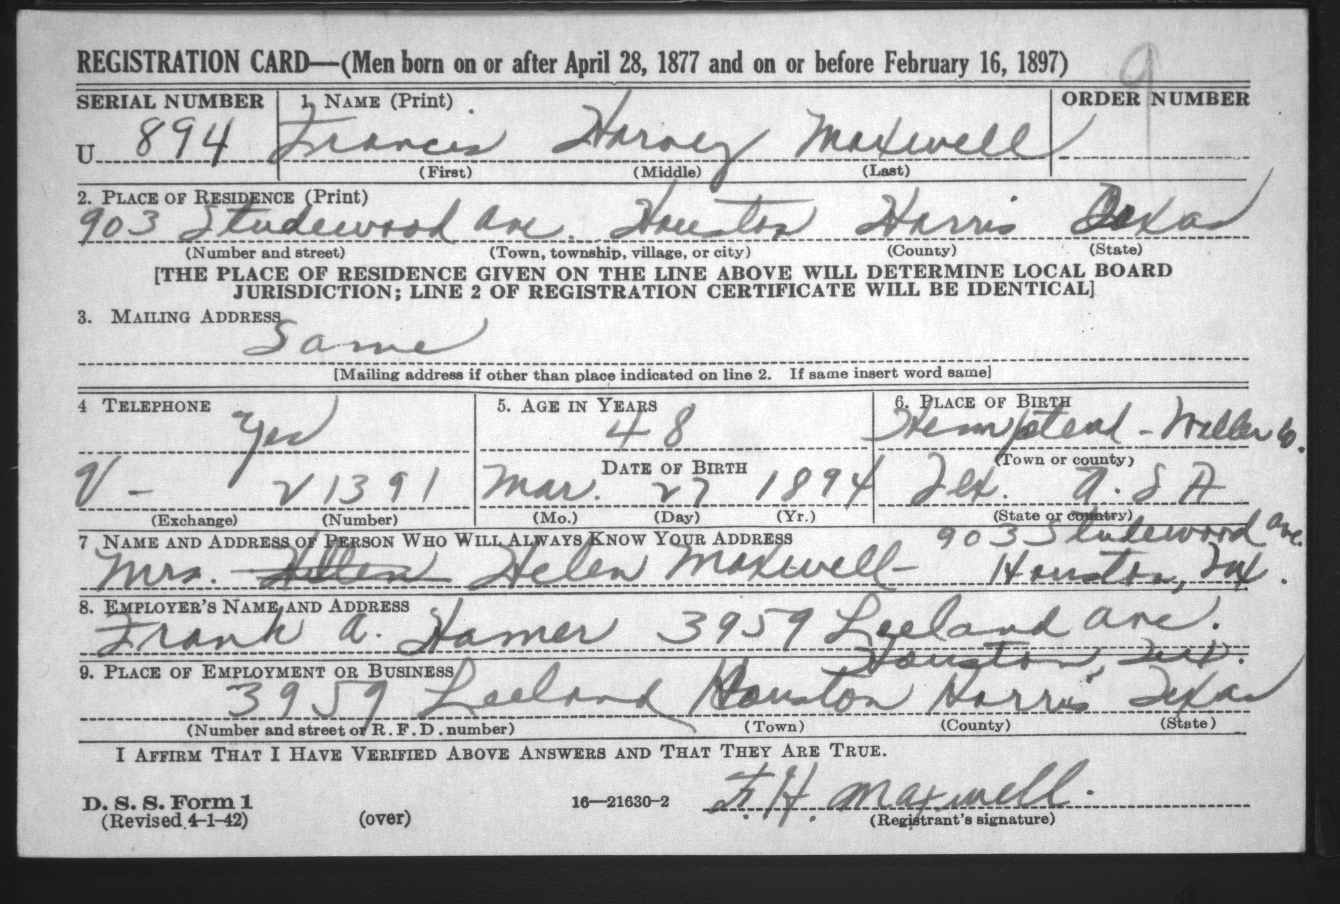 REGISTRATION CARD—(Men born on or after April 28, 1877 and on or before February 16, 1897)
9
SERIAL NUMBER 1. NAME (Print) ORDER NUMBER
U 894 Francis Harvey Maxwell
(First) (Middle) (Last)
2. PLACE OF RESIDENCE (Print)
903 Studewood Ave. Houston Harris Texas
(Number and street) (Town, township, village, or city) (County) (State)
[THE PLACE OF RESIDENCE GIVEN ON THE LINE ABOVE WILL DETERMINE LOCAL BOARD
JURISDICTION; LINE 2 OF REGISTRATION CERTIFICATE WILL BE IDENTICAL]
3. MAILING ADDRESS
Same
[Mailing address if other than place indicated on line 2. If same insert word same]
4 TELEPHONE 5. AGE IN YEARS 6. PLACE OF BIRTH
Yes 48 Hempstead - Waller Co.
DATE OF BIRTH (Town or county)
V - 21391 Mar. 27 1894 Tex. U.S A
(Exchange) (Number) (Mo.) (Day) (Yr.) (State or country)
7 NAME AND ADDRESS OF PERSON WHO WILL ALWAYS KNOW YOUR ADDRESS 903 Studewood Ave.
Mrs. Helen Maxwell - Houston, Tex.
8. EMPLOYER'S NAME AND ADDRESS
Frank A. Hamer 3959 Leeland Ave.
Houston, Tex.
9. PLACE OF EMPLOYMENT OR BUSINESS
3959 Leeland Houston Harris Texas
(Number and street or R. F. D. number) (Town) (County) (State)
I AFFIRM THAT I HAVE VERIFIED ABOVE ANSWERS AND THAT THEY ARE TRUE.
F. H. Maxwell.
D. S. S. Form 1 16—21630-2
(Revised 4-1-42) (over) (Registrant's signature)